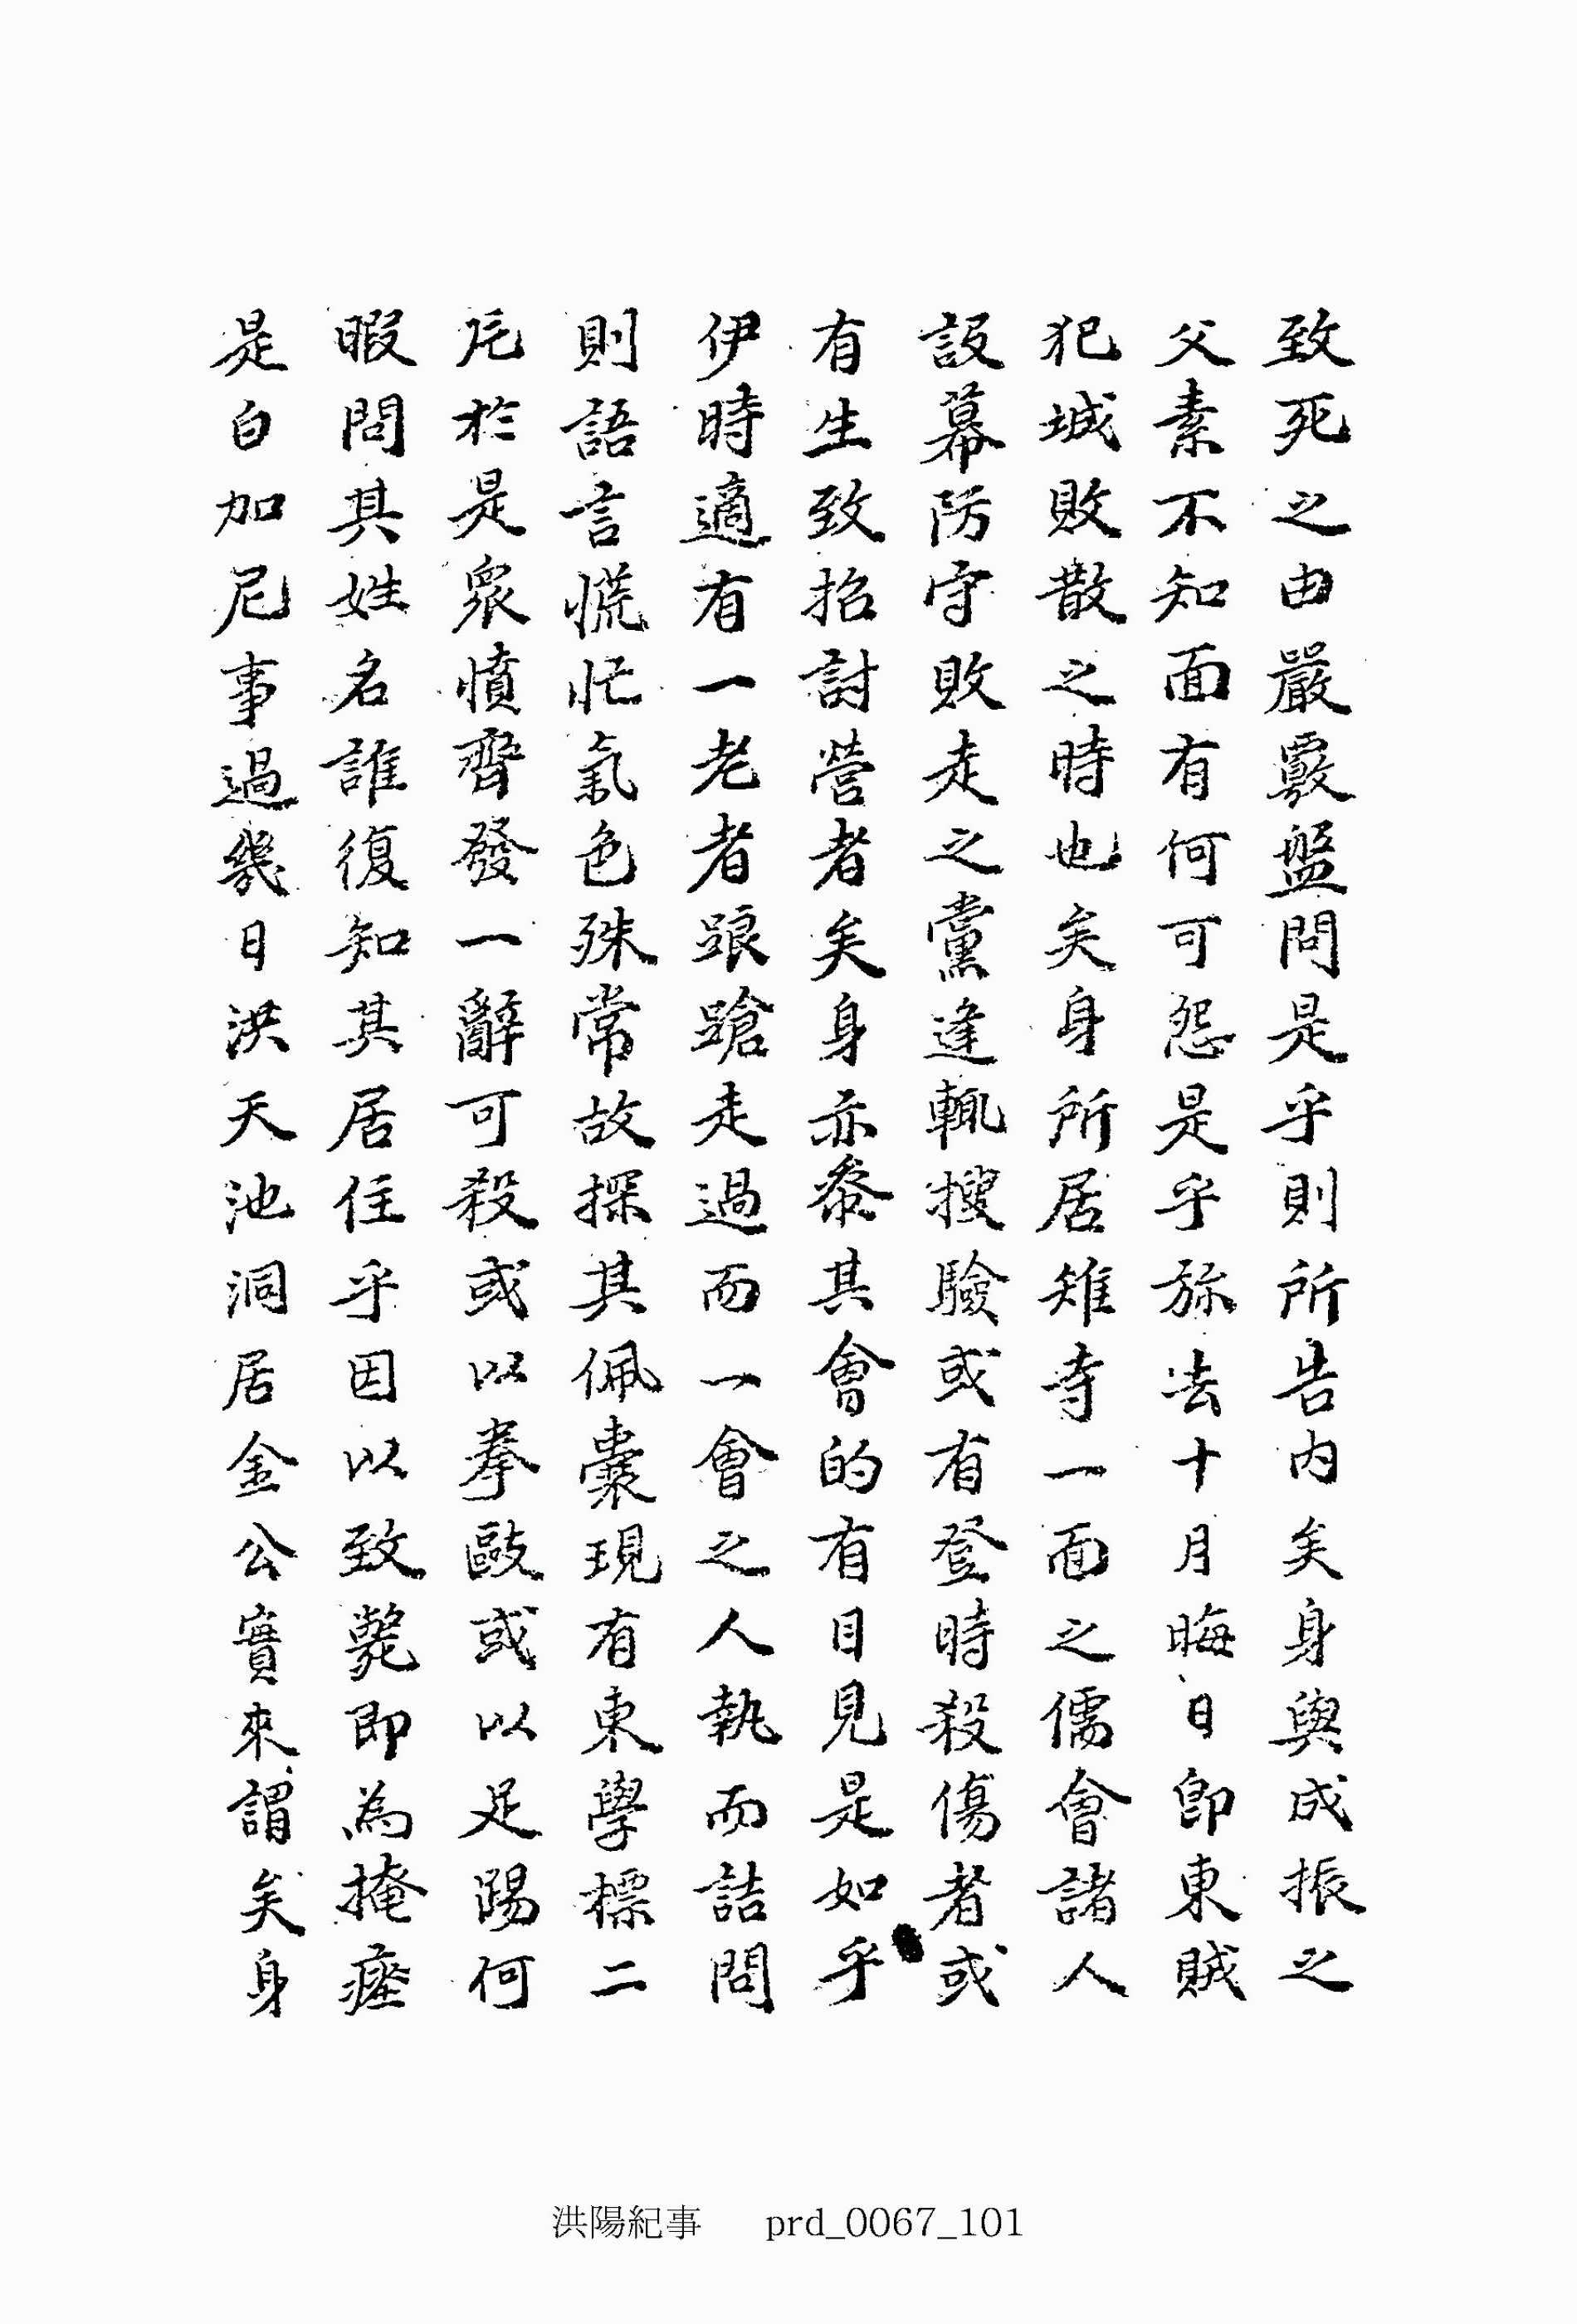 致死之由嚴覈盤問是乎則所告內矣身與成振之
父素不知面有何可怨是乎旀去十月晦日卽東賊
犯城敗散之時也矣身所居雉寺一面之儒會諸人
設幕防守敗走之黨逢輒搜驗或有登時殺傷者或
有生致招討營者矣身亦叅其會的有目見是如乎
伊時適有一老者踉蹌走過而一會之人執而詰問
則語言慌忙氣色殊常故探其佩囊現有東學標二
尾於是衆憤齊發一辭可殺或以拳敺或以足踢何
暇問其姓名誰復知其居住乎因以致斃即為掩瘞
是白加尼事過幾日洪天池洞居金公實來謂矣身
洪陽紀事 prd_0067_101